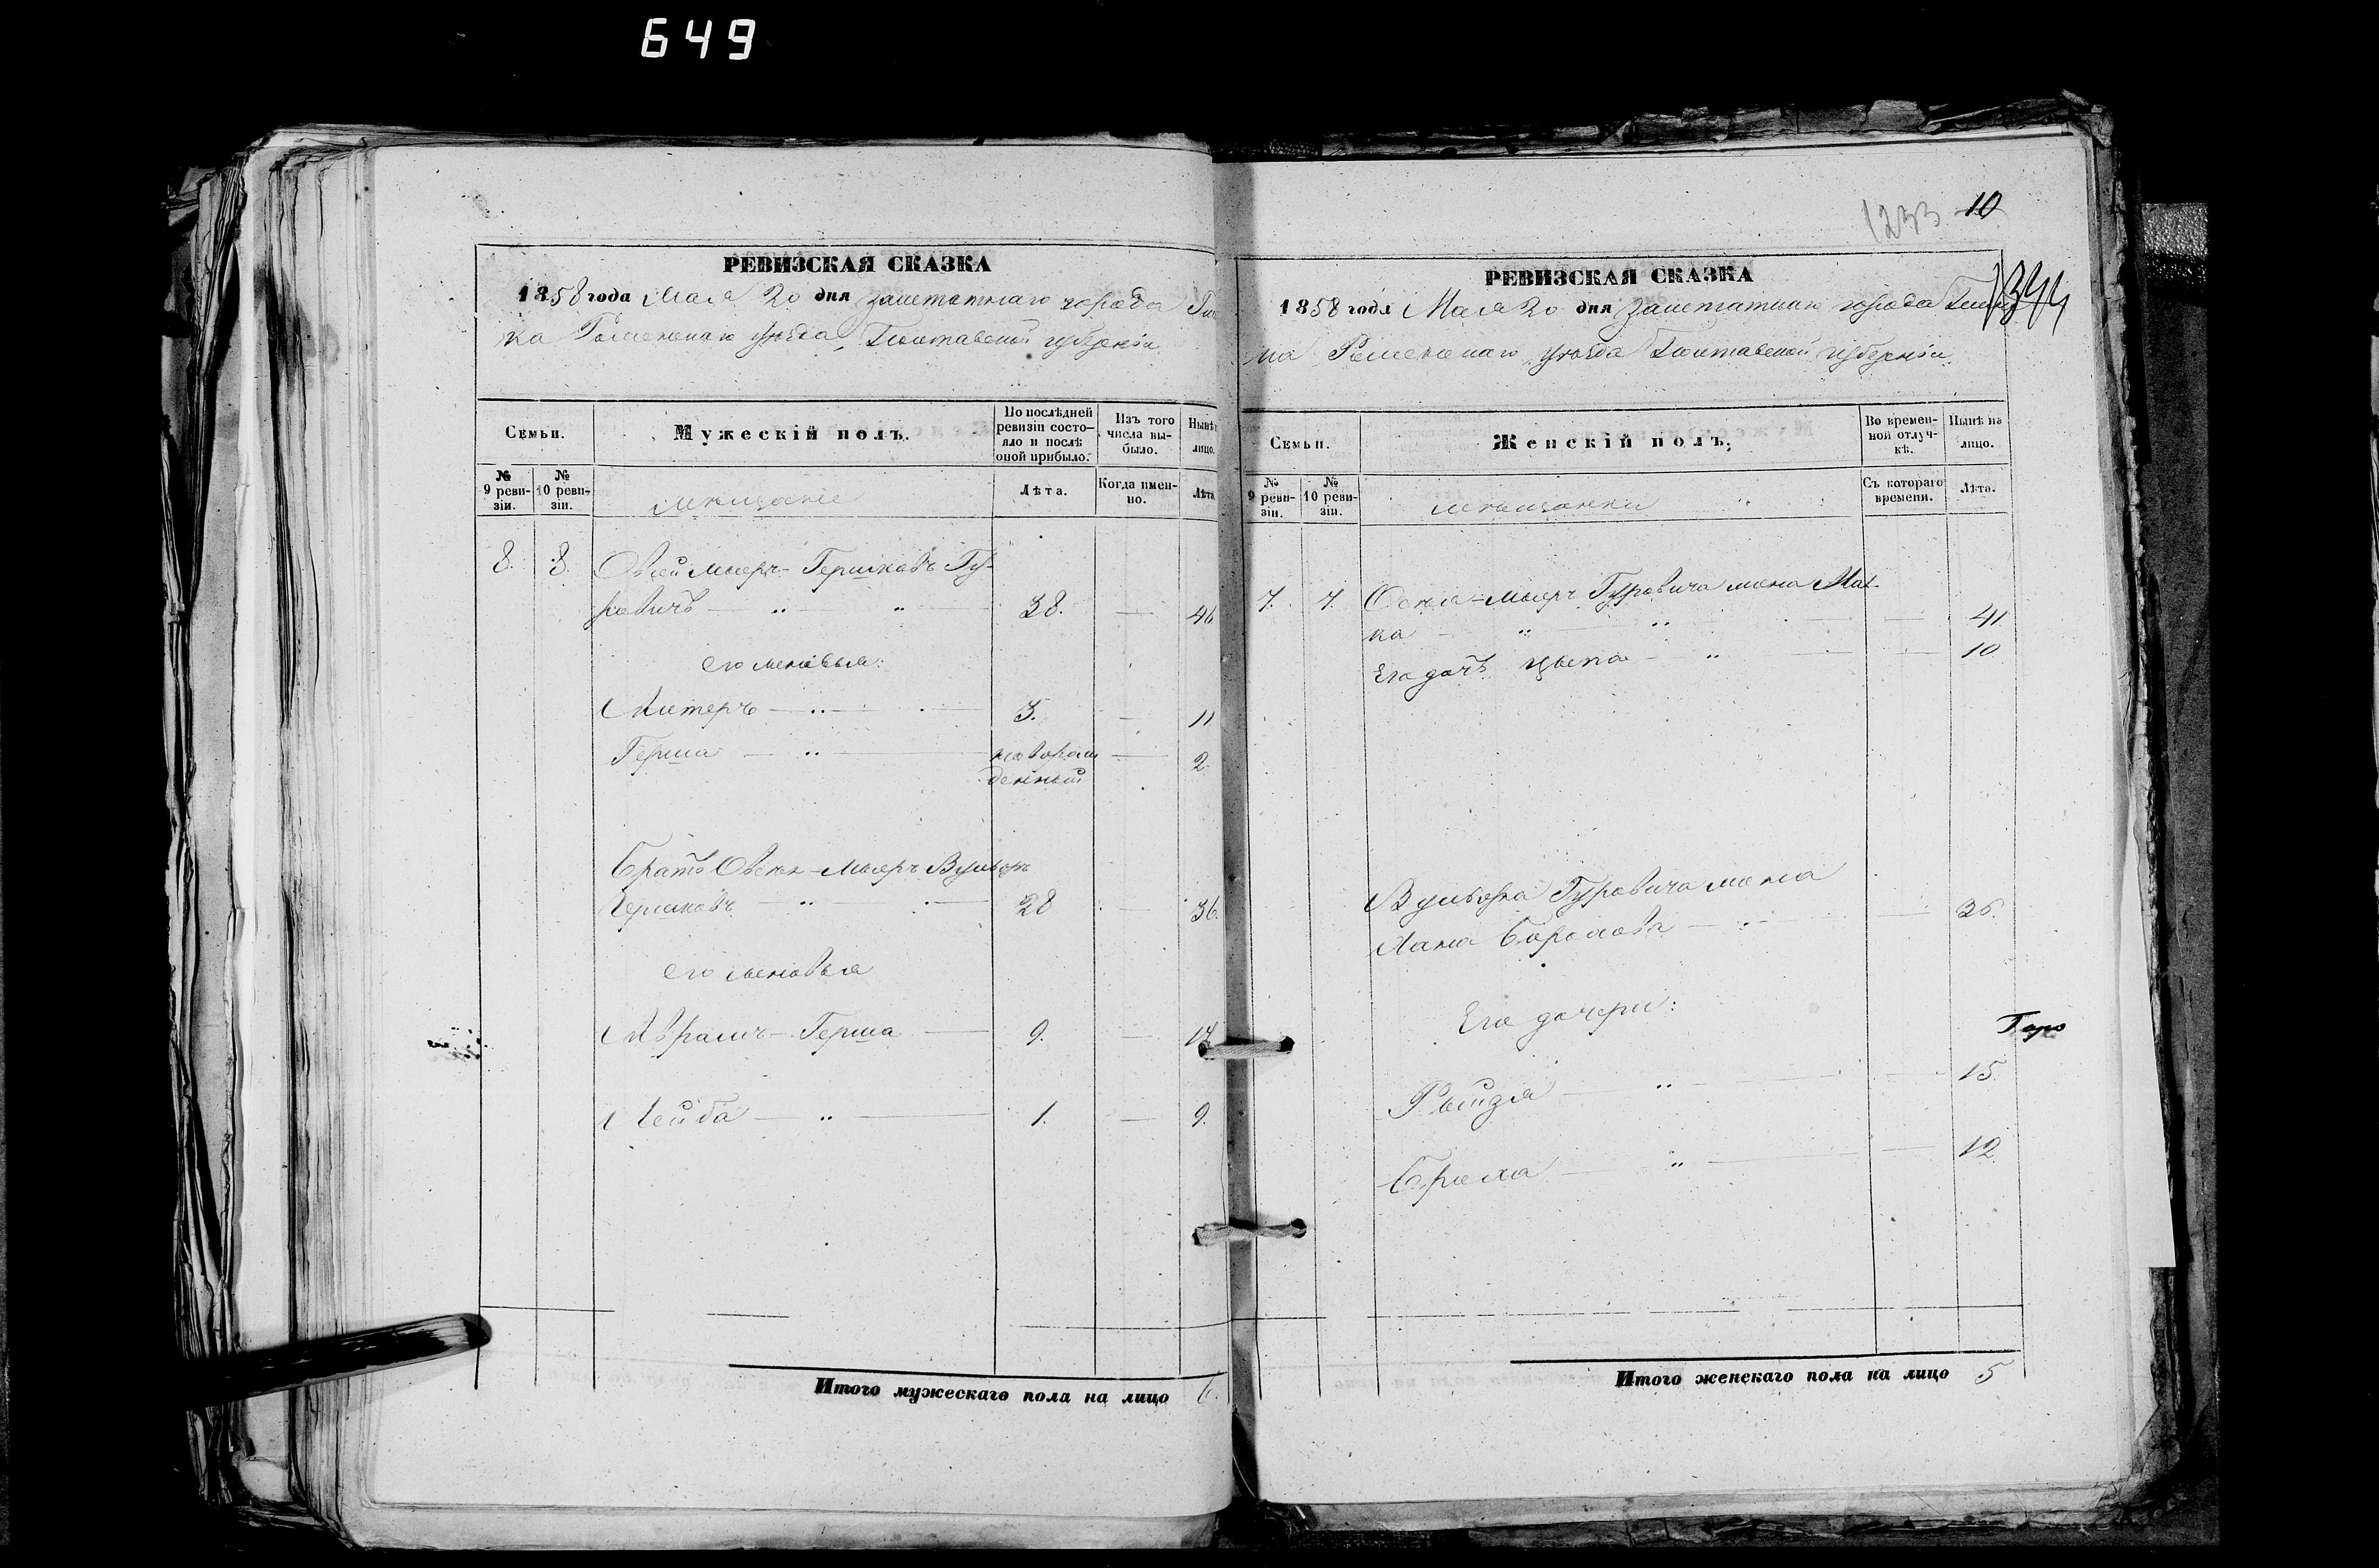 649
РЕВИЗСКАЯ СКАЗКА
1858 года Мая 20 дня заштатнаго города
ка Роменскаго уѣзда, Полтавской губерніи
Семьи.
Мужескій полъ.
По послѣдней ревизіи состо-
яло и послѣ
оной прибыло.
Изъ того
числа вы-
было.
Нынѣ
лицо.
№
9 реви-
зіи.
№
10 реви-
зіи.
мѣщане
Лѣта.
Когда имен-
но.
Лѣта
8. 8. Овсей Мееръ-Гершковъ Гу-
ровичъ 38. 46
его сыновья:
Литеръ 3. 11
Герша новорож
денный 2.
Братъ Овсея-Меера Вульфъ
Гершковъ 28 36.
его сыновья
Абрамъ-Герша 9. 17
Лейба 1. 9.
Итого мужескаго пола на лицо 6.
1233 10
1344
РЕВИЗСКАЯ СКАЗКА
1858 года Мая 20 дня заштатнаго города
ка Роменскаго уѣзда Полтавской губерніи
Семьи.
Женскій полъ.
Во времен-
ной отлуч-
кѣ.
Нынѣ на
лицо.
№
9 реви-
зіи.
№
10 реви-
зіи.
мѣщанки
Съ котораго
времени.
Лѣта.
7. 7. Овсея-Меера Гуровича жена Мал-
ка 41
Его дочь Цыпа 10
Вульфа Гуровича жена
Хана Борохова 36.
Его дочери:
Рейзя 15
Бриха 12
Итого женскаго пола на лицо 5